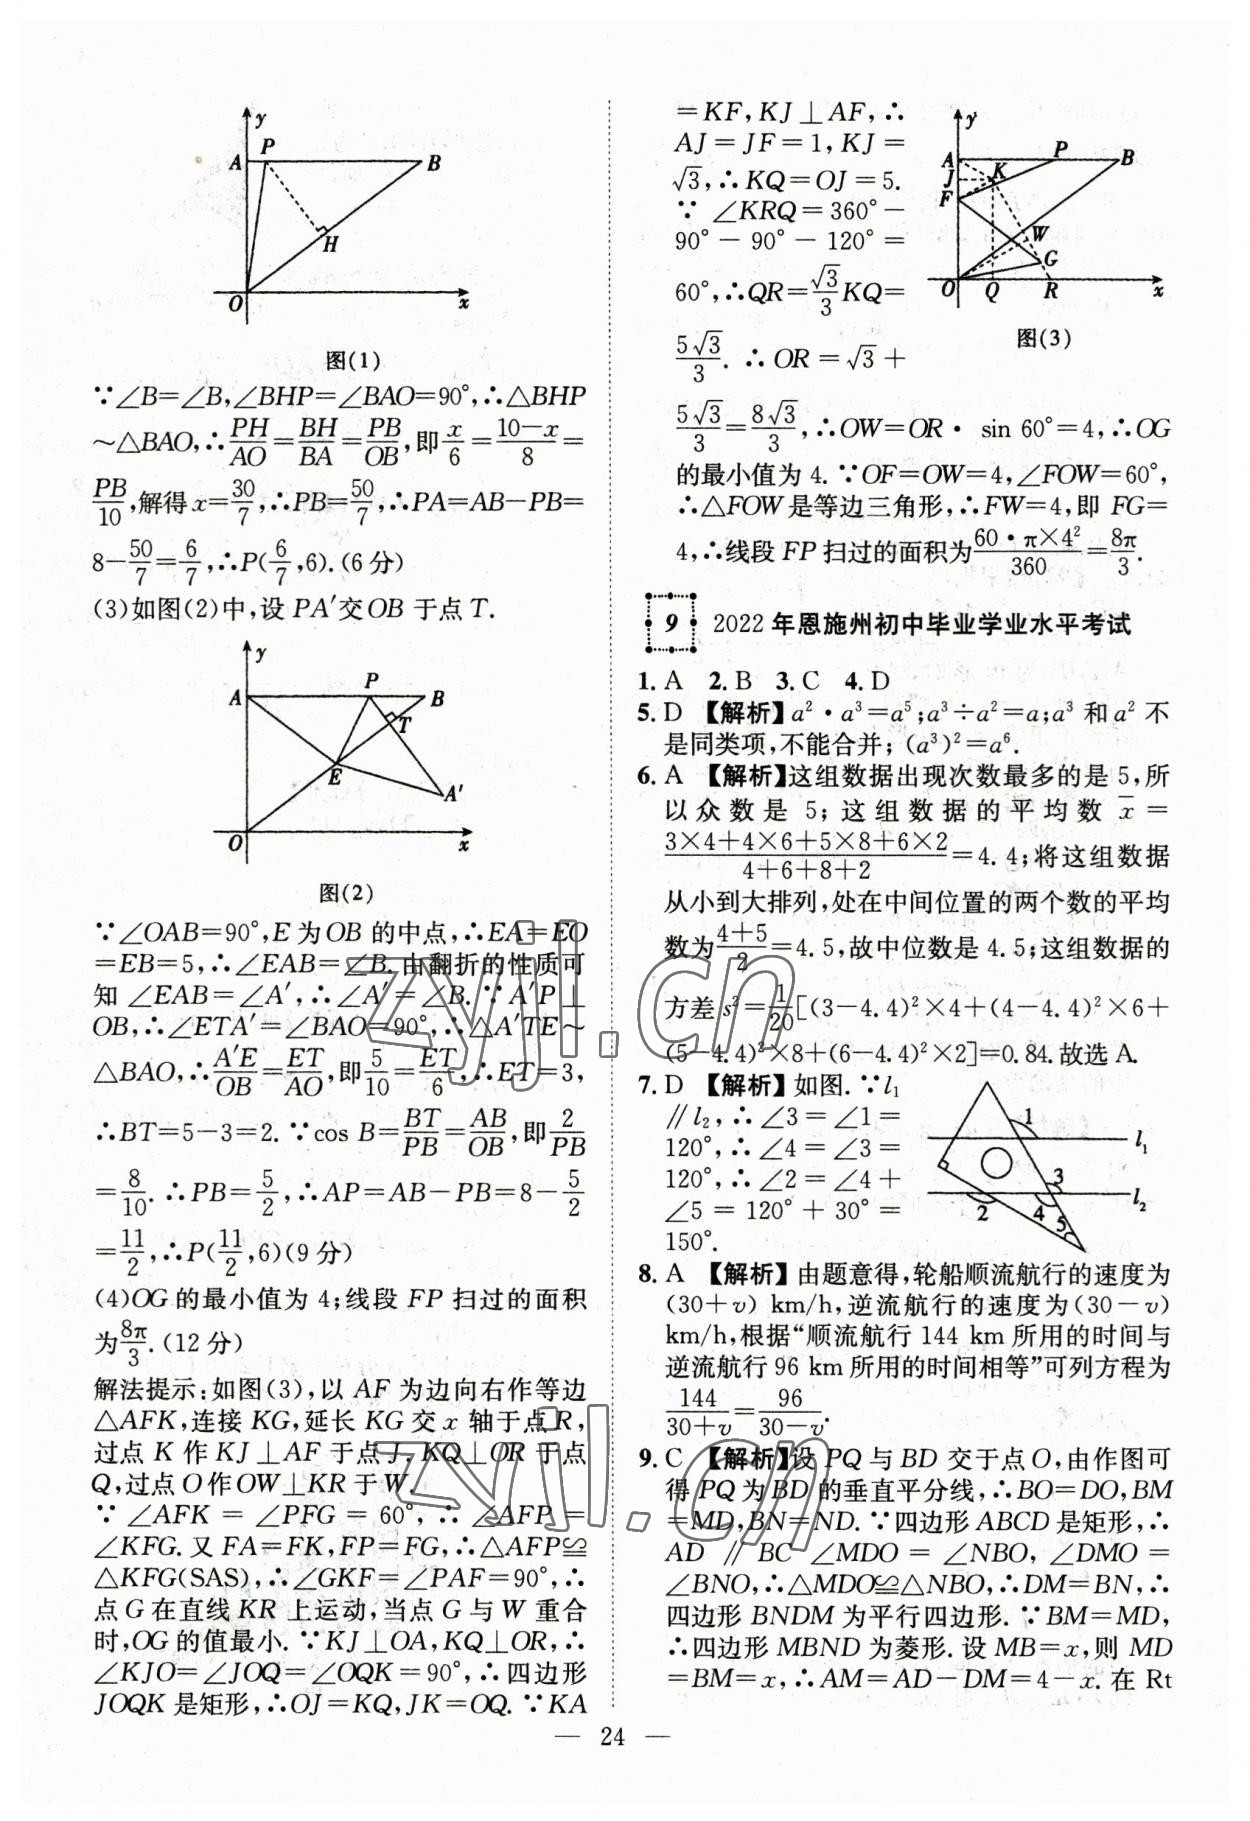 y
A P B
H
O x
图(1)
∵∠B=∠B,∠BHP=∠BAO=90°,∴△BHP
∽△BAO,∴PH/AO=BH/BA=PB/OB,即x/6=(10-x)/8=
PB/10,解得x=30/7,∴PB=50/7,∴PA=AB-PB=
8-50/7=6/7,∴P(6/7,6).(6分)
(3)如图(2)中,设PA′交OB于点T.
y
A P B
T
E A′
O x
图(2)
∵∠OAB=90°,E为OB的中点,∴EA=EO
=EB=5,∴∠EAB=∠B.由翻折的性质可
知∠EAB=∠A′,∴∠A′=∠B.∵A′P⊥
OB,∴∠ETA′=∠BAO=90°,∴△A′TE∽
△BAO,∴A′E/OB=ET/AO,即5/10=ET/6,∴ET=3,
∴BT=5-3=2.∵cos B=BT/PB=AB/OB,即2/PB
=8/10.∴PB=5/2,∴AP=AB-PB=8-5/2
=11/2,∴P(11/2,6)(9分)
(4)OG的最小值为4;线段FP扫过的面积
为8π/3.(12分)
解法提示:如图(3),以AF为边向右作等边
△AFK,连接KG,延长KG交x轴于点R,
过点K作KJ⊥AF于点J,KQ⊥OR于点
Q,过点O作OW⊥KR于W.
∵∠AFK=∠PFG=60°,∴∠AFP=
∠KFG.又FA=FK,FP=FG,∴△AFP≌
△KFG(SAS),∴∠GKF=∠PAF=90°,∴
点G在直线KR上运动,当点G与W重合
时,OG的值最小.∵KJ⊥OA,KQ⊥OR,∴
∠KJO=∠JOQ=∠OQK=90°,∴四边形
JOQK是矩形,∴OJ=KQ,JK=OQ.∵KA
=KF,KJ⊥AF,∴
AJ=JF=1,KJ=
√3,∴KQ=OJ=5.
∵∠KRQ=360°-
90°-90°-120°=
60°,∴QR=√3/3KQ=
5√3/3.∴OR=√3+
y
A P B
J K
F
W
G
O Q R x
图(3)
5√3/3=8√3/3,∴OW=OR·sin 60°=4,∴OG
的最小值为4.∵OF=OW=4,∠FOW=60°,
∴△FOW是等边三角形,∴FW=4,即FG=
4,∴线段FP扫过的面积为60·π×4²/360=8π/3.
9 2022年恩施州初中毕业学业水平考试
1.A 2.B 3.C 4.D
5.D 【解析】a²·a³=a⁵;a³÷a²=a;a³和a²不
是同类项,不能合并;(a³)²=a⁶.
6.A 【解析】这组数据出现次数最多的是5,所
以众数是5;这组数据的平均数x̄=
(3×4+4×6+5×8+6×2)/(4+6+8+2)=4.4;将这组数据
从小到大排列,处在中间位置的两个数的平均
数为(4+5)/2=4.5,故中位数是4.5;这组数据的
方差s²=1/20[(3-4.4)²×4+(4-4.4)²×6+
(5-4.4)²×8+(6-4.4)²×2]=0.84.故选A.
7.D 【解析】如图.∵l₁
∥l₂,∴∠3=∠1=
120°,∴∠4=∠3=
120°,∴∠2=∠4+
∠5=120°+30°=
150°.
1 l₁
3
2 4 l₂
5
8.A 【解析】由题意得,轮船顺流航行的速度为
(30+v) km/h,逆流航行的速度为(30-v)
km/h,根据“顺流航行144 km所用的时间与
逆流航行96 km所用的时间相等”可列方程为
144/(30+v)=96/(30-v).
9.C 【解析】设PQ与BD交于点O,由作图可
得PQ为BD的垂直平分线,∴BO=DO,BM
=MD,BN=ND.∵四边形ABCD是矩形,∴
AD∥BC ∠MDO=∠NBO,∠DMO=
∠BNO,∴△MDO≌△NBO,∴DM=BN,∴
四边形BNDM为平行四边形.∵BM=MD,
∴四边形MBND为菱形.设MB=x,则MD
=BM=x,∴AM=AD-DM=4-x.在Rt
— 24 —
zyjl.cn
zyjl.cn